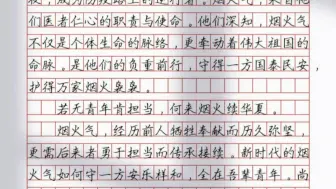 们医者仁心的职责与使命。他们深知，烟火气
不仅是个体生命的脉络，更牵动着伟大祖国的
命脉。是他们的负重前行，守得一方国泰民安，
护得万家烟火袅袅。
若无青年肯担当，何来烟火续华夏。
烟火气，经历前人牺牲奉献而历久弥坚，
更需后来者勇于担当而传承接续。新时代的烟
火气如何守一方安乐祥和，全在吾辈青年。尚